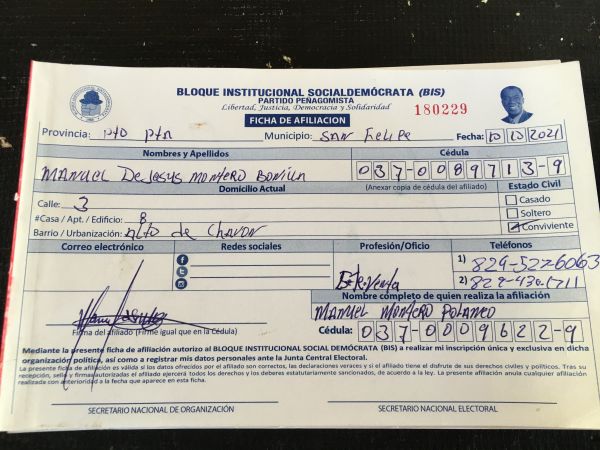 BLOQUE INSTITUCIONAL SOCIALDEMÓCRATA (BIS)
PARTIDO PEÑAGOMISTA
Libertad, Justicia, Democracia y Solidaridad
180229
FICHA DE AFILIACION
Provincia: Pto Pta Municipio: SAN Felipe Fecha: 10/10/2021
Nombres y Apellidos Cédula
MANUEL DeJesus MONTERO BONILLA 037-0089713-9
Domicilio Actual (Anexar copia de cédula del afiliado) Estado Civil
Calle: 3 Casado
#Casa / Apt. / Edificio: 8 Soltero
Barrio / Urbanización: Alto de Chavon Conviviente
Correo electrónico Redes sociales Profesión/Oficio Teléfonos
1) 829-527-6063
Venta 2) 829-430-1711
Nombre completo de quien realiza la afiliación
MANUEL MONTERO POLANCO
Firma del afiliado (Firme igual que en la Cédula) Cédula: 037-0009622-9
Mediante la presente ficha de afiliación autorizo al BLOQUE INSTITUCIONAL SOCIAL DEMÓCRATA (BIS) a realizar mi inscripción única y exclusiva en dicha
organización política, así como a registrar mis datos personales ante la Junta Central Electoral.
La presente ficha de afiliación es válida si los datos ofrecidos por el afiliado son correctos, las declaraciones veraces y si el afiliado tiene el disfrute de sus derechos civiles y políticos. Tras su
recepción, sello y firmas autorizadas el afiliado ejercerá todos los derechos y los deberes estatutariamente sancionados, de acuerdo a la ley. La presente afiliación anula cualquier afiliación
realizada con anterioridad a la fecha que aparece en esta ficha.
SECRETARIO NACIONAL DE ORGANIZACIÓN SECRETARIO NACIONAL ELECTORAL